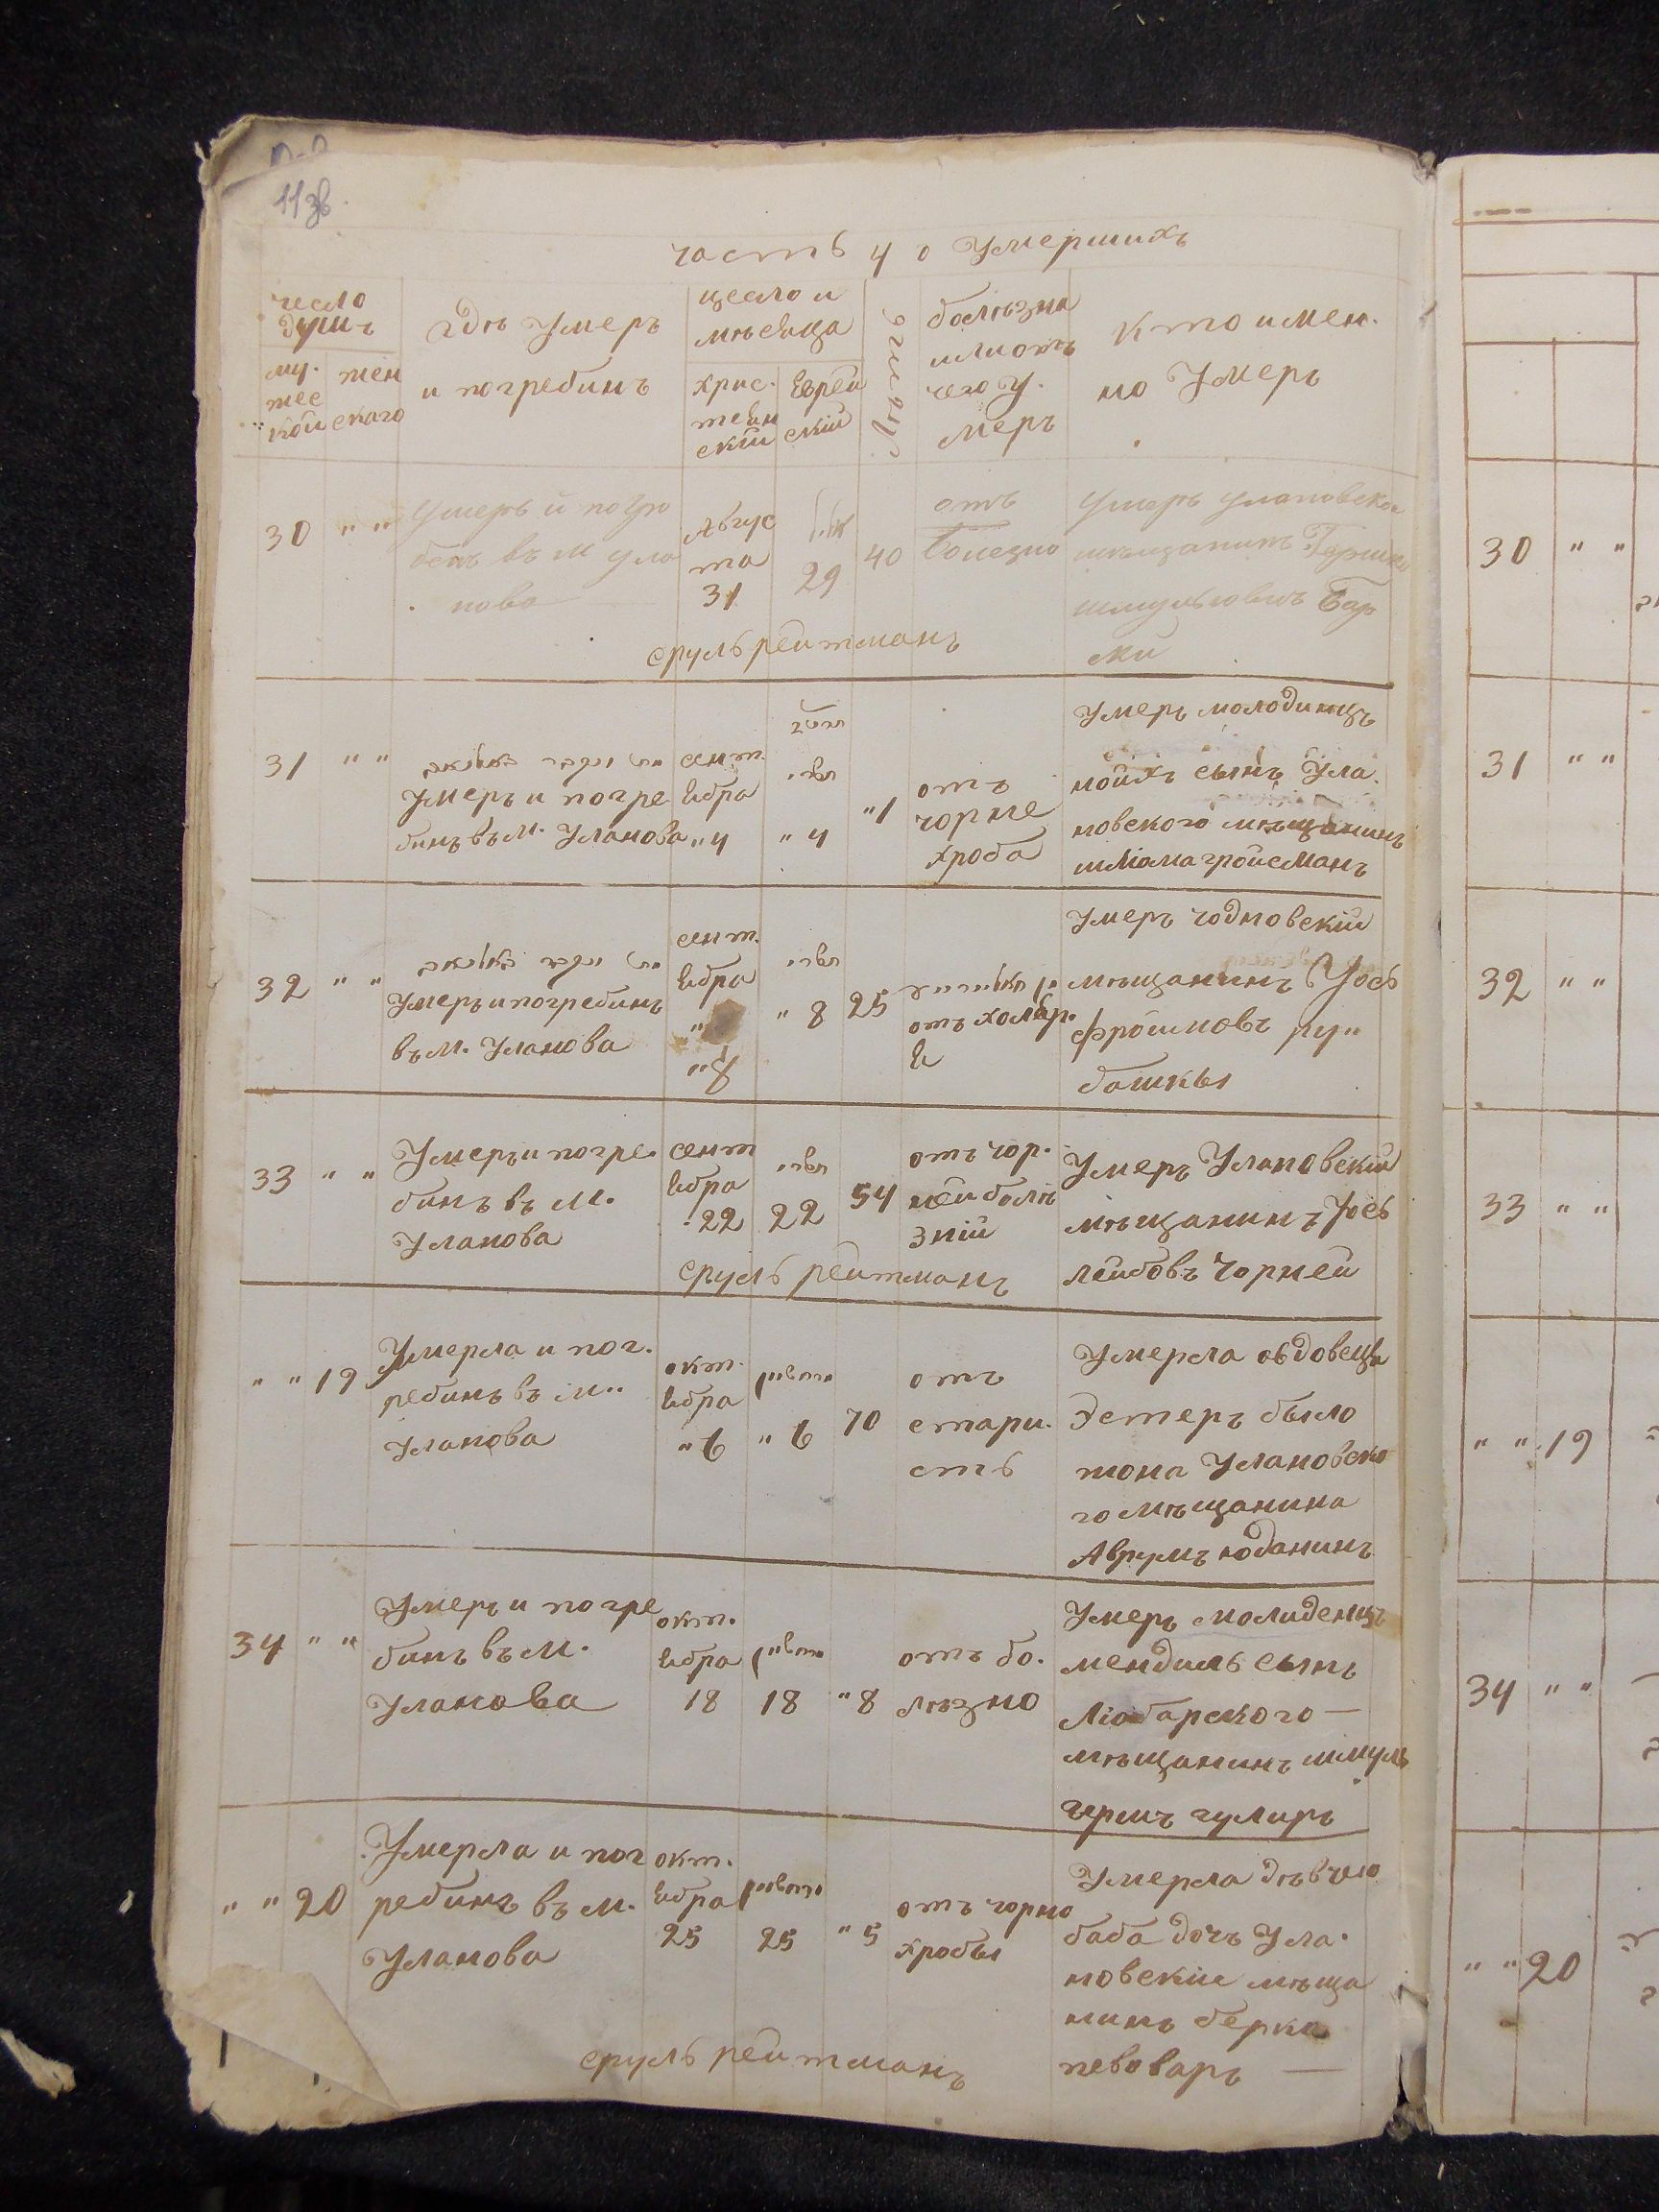 11 зв.
часть 4 о Умершихъ
число душъ
му. жес кой
жен скаго
гдѣ Умеръ
и погребинъ
цесло и
мѣсеаца
Хрис. теан скій
Еврей скій
лѣта
болѣзна
илиотъ
чего У.
меръ
Кто имен.
но Умеръ
30 " "
Умеръ и погре
бенъ въ м Ула
нова
Авгус
та
31
29
40
отъ
Болезно
Умеръ улановско
мѣщанинъ Гершко
шмульовичъ Бар
ски
сруль рейтманъ
31 " "
Умеръ и погре
бинъ въ м. Уланова
сент.
ебра
"4
"4
"1
отъ
чорне
хроба
Умеръ молодинцъ
мойхъ сынъ Ула.
новского мѣщанинъ
шліома гройсманъ
32 " "
Умеръ и погребинъ
въ м. Уланова
сент.
ебра
"8
" 8
25
отъ холер.
е
Умеръ чодновскій
мѣщанинъ Уось
фройимовъ ру"
башкы
33 " "
Умеръ и погре.
бинъ въ м.
Уланова
сент
ебра
22
22
54
отъ чор.
ней болѣ
зній
Умеръ Улановскій
мѣщанинъ Уось
лейбовъ Чорней
сруль рейтманъ
" " 19
Умерла и пог.
ребинъ въ м"
Уланова
окт.
ебра
"6
"6
70
отъ
стари.
сть
Умерла овдовеца
Эстеръ было
жона Улановско
го мѣщанина
Аврумъ юданинъ
34 " "
Умеръ и погре
бинъ въ м.
Уланова
окт.
ебра
18
18
"8
отъ бо.
лѣзно
Умеръ молиденцъ
мендиль сынъ
Любарского —
мѣщанинъ шмуль
гершъ гулиръ
" " 20
Умерла и пог
ребинъ въ м.
Уланова
окт.
ебра
25
25
"5
отъ чорно
хробы
Умерла дѣвчею
баба дочъ Ула.
новскіи мѣща
нинъ берко
певоваръ —
сруль рейтманъ
30 " "
31 " "
32 " "
33 " "
" " 19
34 " "
" " 20